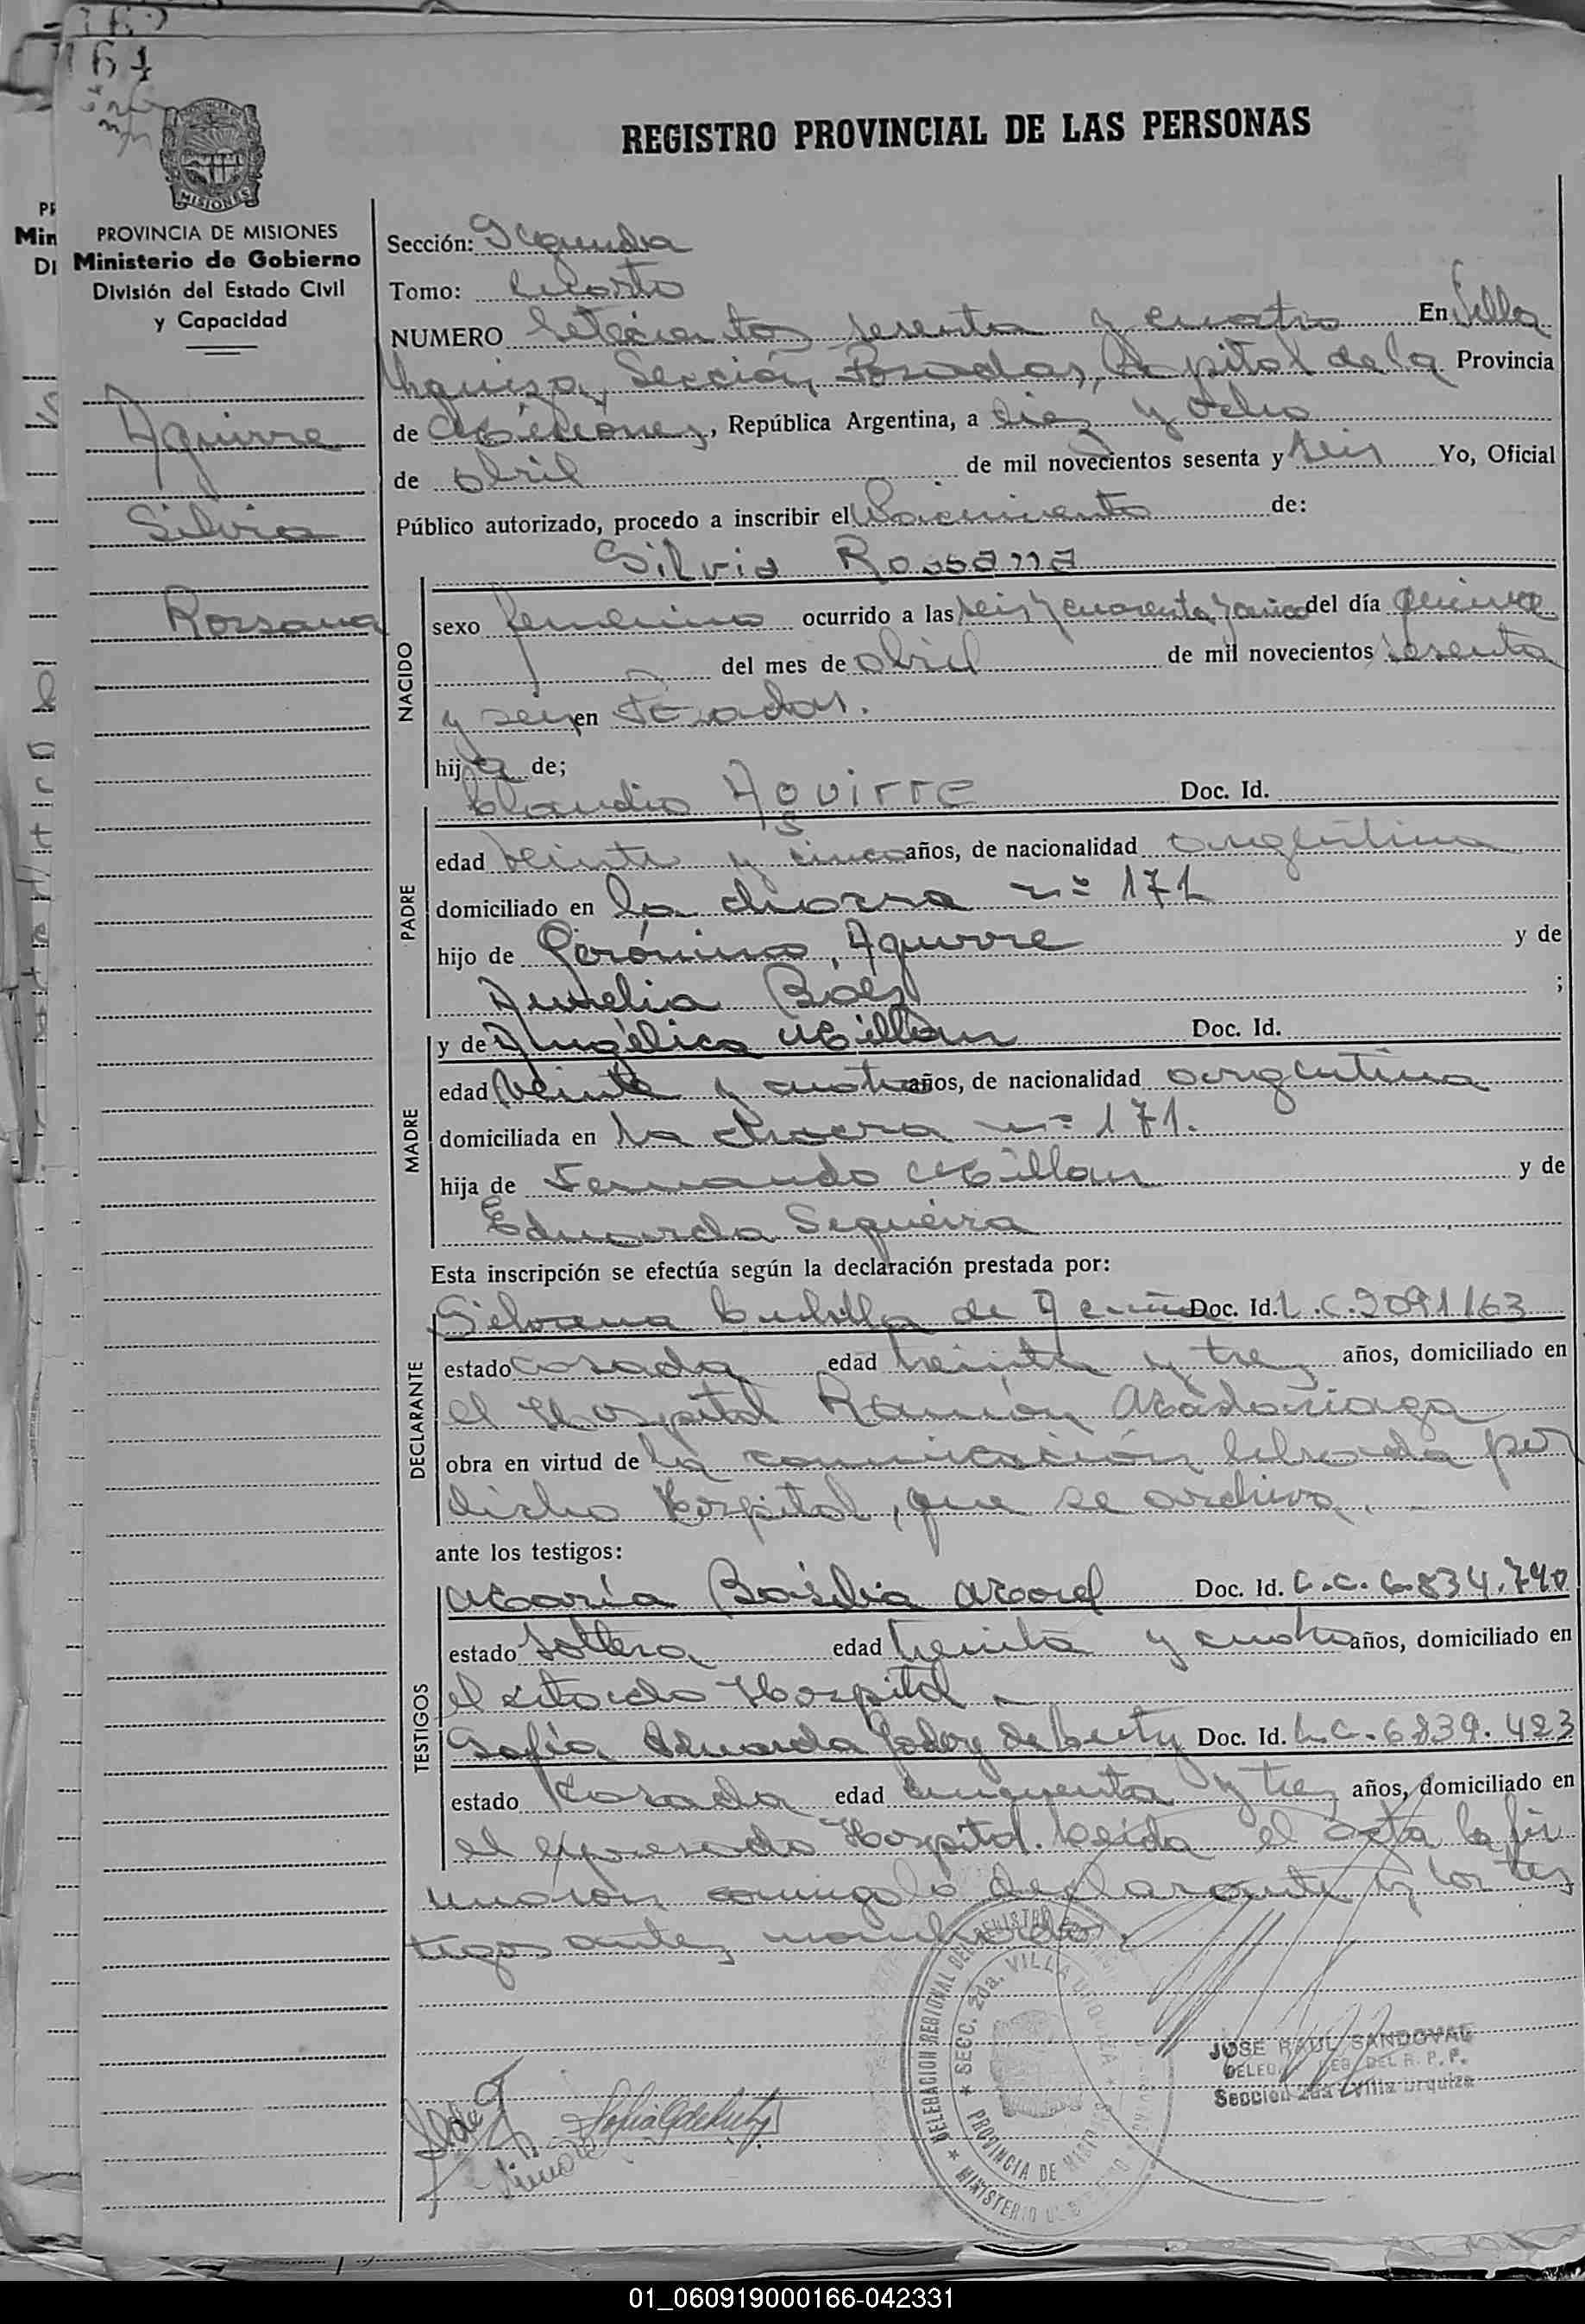 164
MISIONES
PROVINCIA DE MISIONES
Ministerio de Gobierno
División del Estado Civil
y Capacidad
Aguirre
Silvia
Rossana
REGISTRO PROVINCIAL DE LAS PERSONAS
Sección: Segunda
Tomo: Cuarto
NUMERO Setecientos sesenta y cuatro En Villa
Urquiza, Sección Posadas, Capital de la Provincia
de Misiones, República Argentina, a diez y ocho
de abril de mil novecientos sesenta y seis Yo, Oficial
Público autorizado, procedo a inscribir el Nacimiento de:
Silvia Rossana
NACIDO
sexo femenino ocurrido a las seis y cuarenta y cinco del día quince
del mes de abril de mil novecientos sesenta
y seis en Posadas.
hija de;
PADRE
Claudio Aguirre Doc. Id.
edad veinte y cinco años, de nacionalidad argentina
domiciliado en la chacra nº 171
hijo de Gerónimo Aguirre y de
Aurelia Báez ;
MADRE
y de Angélica Millán Doc. Id.
edad veinte y cuatro años, de nacionalidad argentina
domiciliada en la chacra nº 171.
hija de Fernando Millan y de
Eduarda Sequeira
Esta inscripción se efectúa según la declaración prestada por:
DECLARANTE
de Doc. Id. L.C. 2091163
estado casada edad treinta y tres años, domiciliado en
el Hospital Ramón Madariaga
obra en virtud de la comunicación librada por
dicho Hospital, que se archiva.
ante los testigos:
TESTIGOS
María Basilia Morel Doc. Id. L.C. 6.834.740
estado soltera edad treinta y cuatro años, domiciliado en
el citado Hospital
Sofía Eduarda Godoy de Doc. Id. L.C. 6839.423
estado casada edad cincuenta y tres años, domiciliado en
el expresado Hospital. Leída el acta la fir
maron conmigo la declarante y los tes
tigos antes nombrados.
DELEGACION REGIONAL DEL REGISTRO
SECC. 2da. VILLA URQUIZA
PROVINCIA DE MISIONES
MINISTERIO DE GOBIERNO
JOSE RAUL SANDOVAL
DEL R. P. P.
Sección 2da Villa Urquiza
01_060919000166-042331